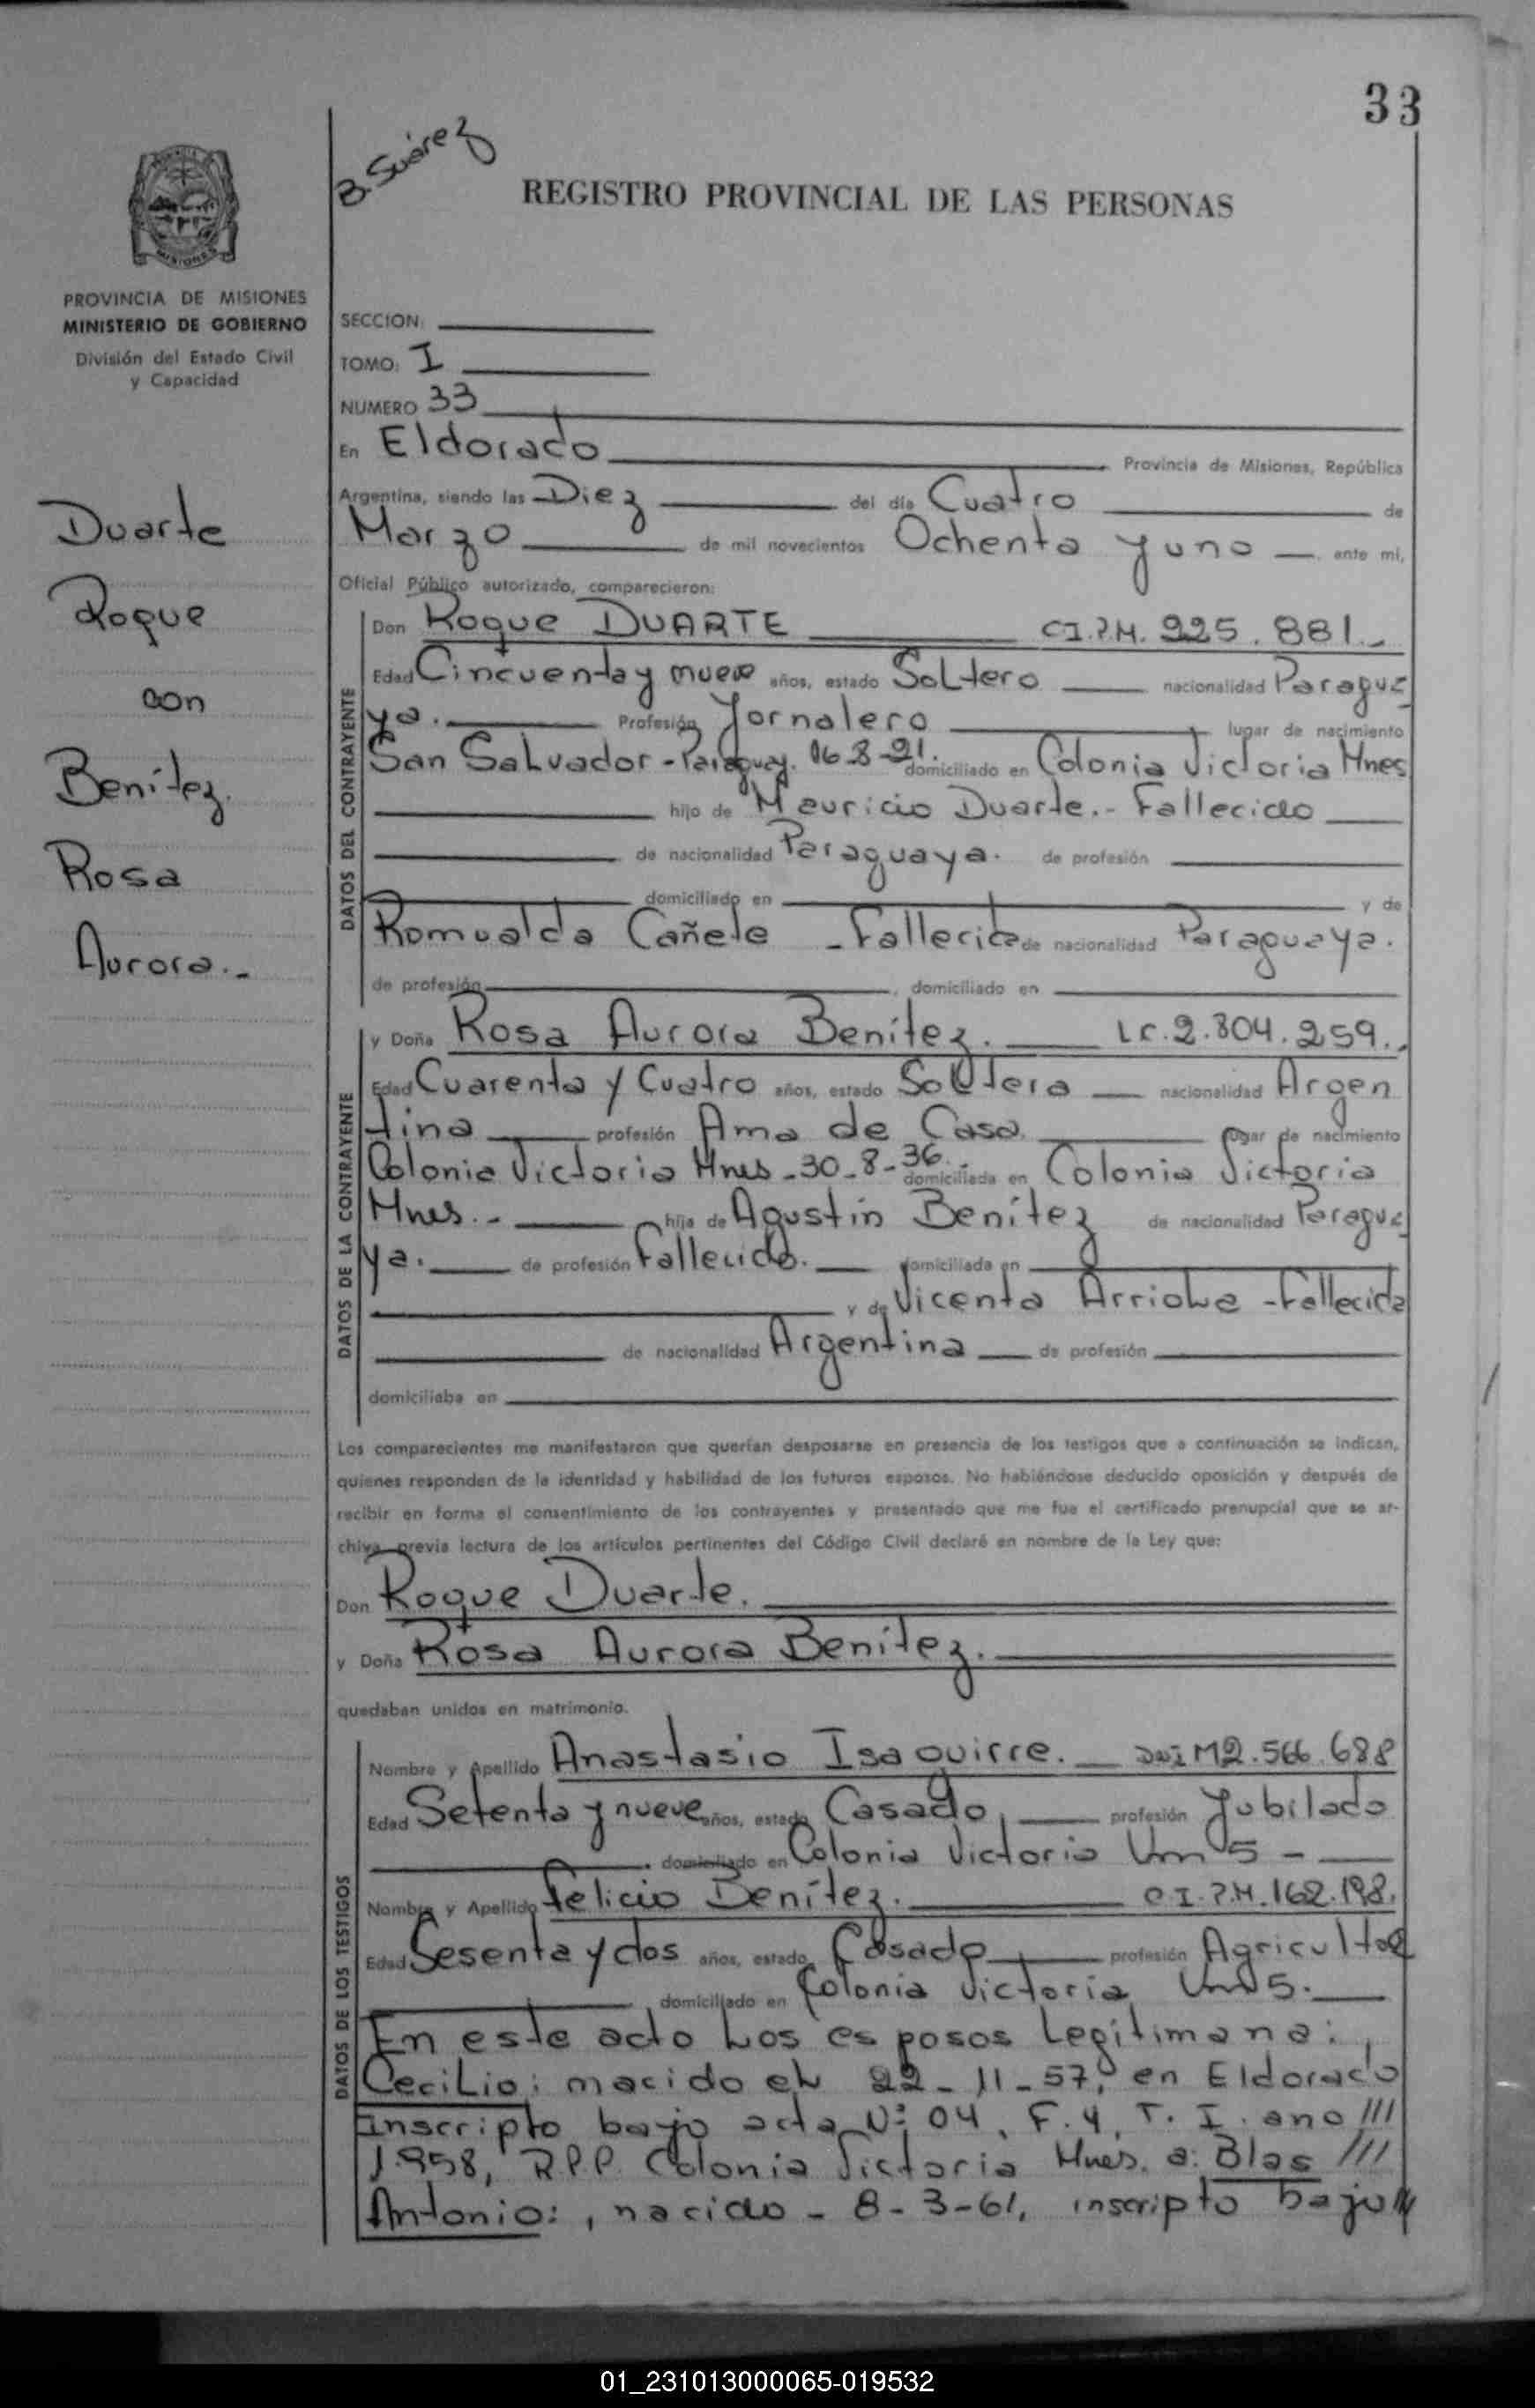 33
B. Suárez
REGISTRO PROVINCIAL DE LAS PERSONAS
MISIONES
PROVINCIA DE MISIONES
MINISTERIO DE GOBIERNO
División del Estado Civil
y Capacidad
Duarte
Roque
con
Benítez.
Rosa
Aurora.-
SECCION:
TOMO: I
NUMERO 33
En Eldorado Provincia de Misiones, República
Argentina, siendo las Diez del día Cuatro de
Marzo de mil novecientos Ochenta y uno ante mí,
Oficial Público autorizado, comparecieron:
DATOS DEL CONTRAYENTE
Don Roque DUARTE C.I.P.M. 225.881.-
Edad Cincuenta y nueve años, estado Soltero nacionalidad Paragua
ya. Profesión Jornalero lugar de nacimiento
San Salvador - Paraguay. 16-8-21. domiciliado en Colonia Victoria Mnes
hijo de Mauricio Duarte.- Fallecido
de nacionalidad Paraguaya. de profesión
domiciliado en y de
Romualda Cañete - Fallecida de nacionalidad Paraguaya.
de profesión , domiciliado en
DATOS DE LA CONTRAYENTE
y Doña Rosa Aurora Benítez. L.C. 2.804.259.-
Edad Cuarenta y Cuatro años, estado Soltera nacionalidad Argen
tina profesión Ama de Casa. lugar de nacimiento
Colonia Victoria Mnes - 30-8-36.- domiciliada en Colonia Victoria
Mnes.- hija de Agustín Benítez de nacionalidad Paragua
ya. de profesión Fallecido. domiciliada en
y de Vicenta Arriola - Fallecida
de nacionalidad Argentina de profesión
domiciliaba en
Los comparecientes me manifestaron que querían desposarse en presencia de los testigos que a continuación se indican,
quienes responden de la identidad y habilidad de los futuros esposos. No habiéndose deducido oposición y después de
recibir en forma el consentimiento de los contrayentes y presentado que me fue el certificado prenupcial que se ar-
chiva previa lectura de los artículos pertinentes del Código Civil declaré en nombre de la Ley que:
Don Roque Duarte.
y Doña Rosa Aurora Benítez.
quedaban unidos en matrimonio.
DATOS DE LOS TESTIGOS
Nombre y Apellido Anastasio Isaguirre. DNI M2.566.688
Edad Setenta y nueve años, estado Casado, profesión Jubilado
domiciliado en Colonia Victoria Km 5 -
Nombre y Apellido Felicio Benítez. C.I.P.M. 162.198.
Edad Sesenta y dos años, estado Casado profesión Agricultor
domiciliado en Colonia Victoria Km 5.
En este acto Los esposos Legitiman a:
Cecilio: nacido el 22-11-57, en Eldorado
inscripto bajo acta Nº 04, F. 4, T. I. ano ///
1.958, R.P.P. Colonia Victoria Mnes. a: Blas ///
Antonio: , nacido - 8-3-61, inscripto bajo //
01_231013000065-019532